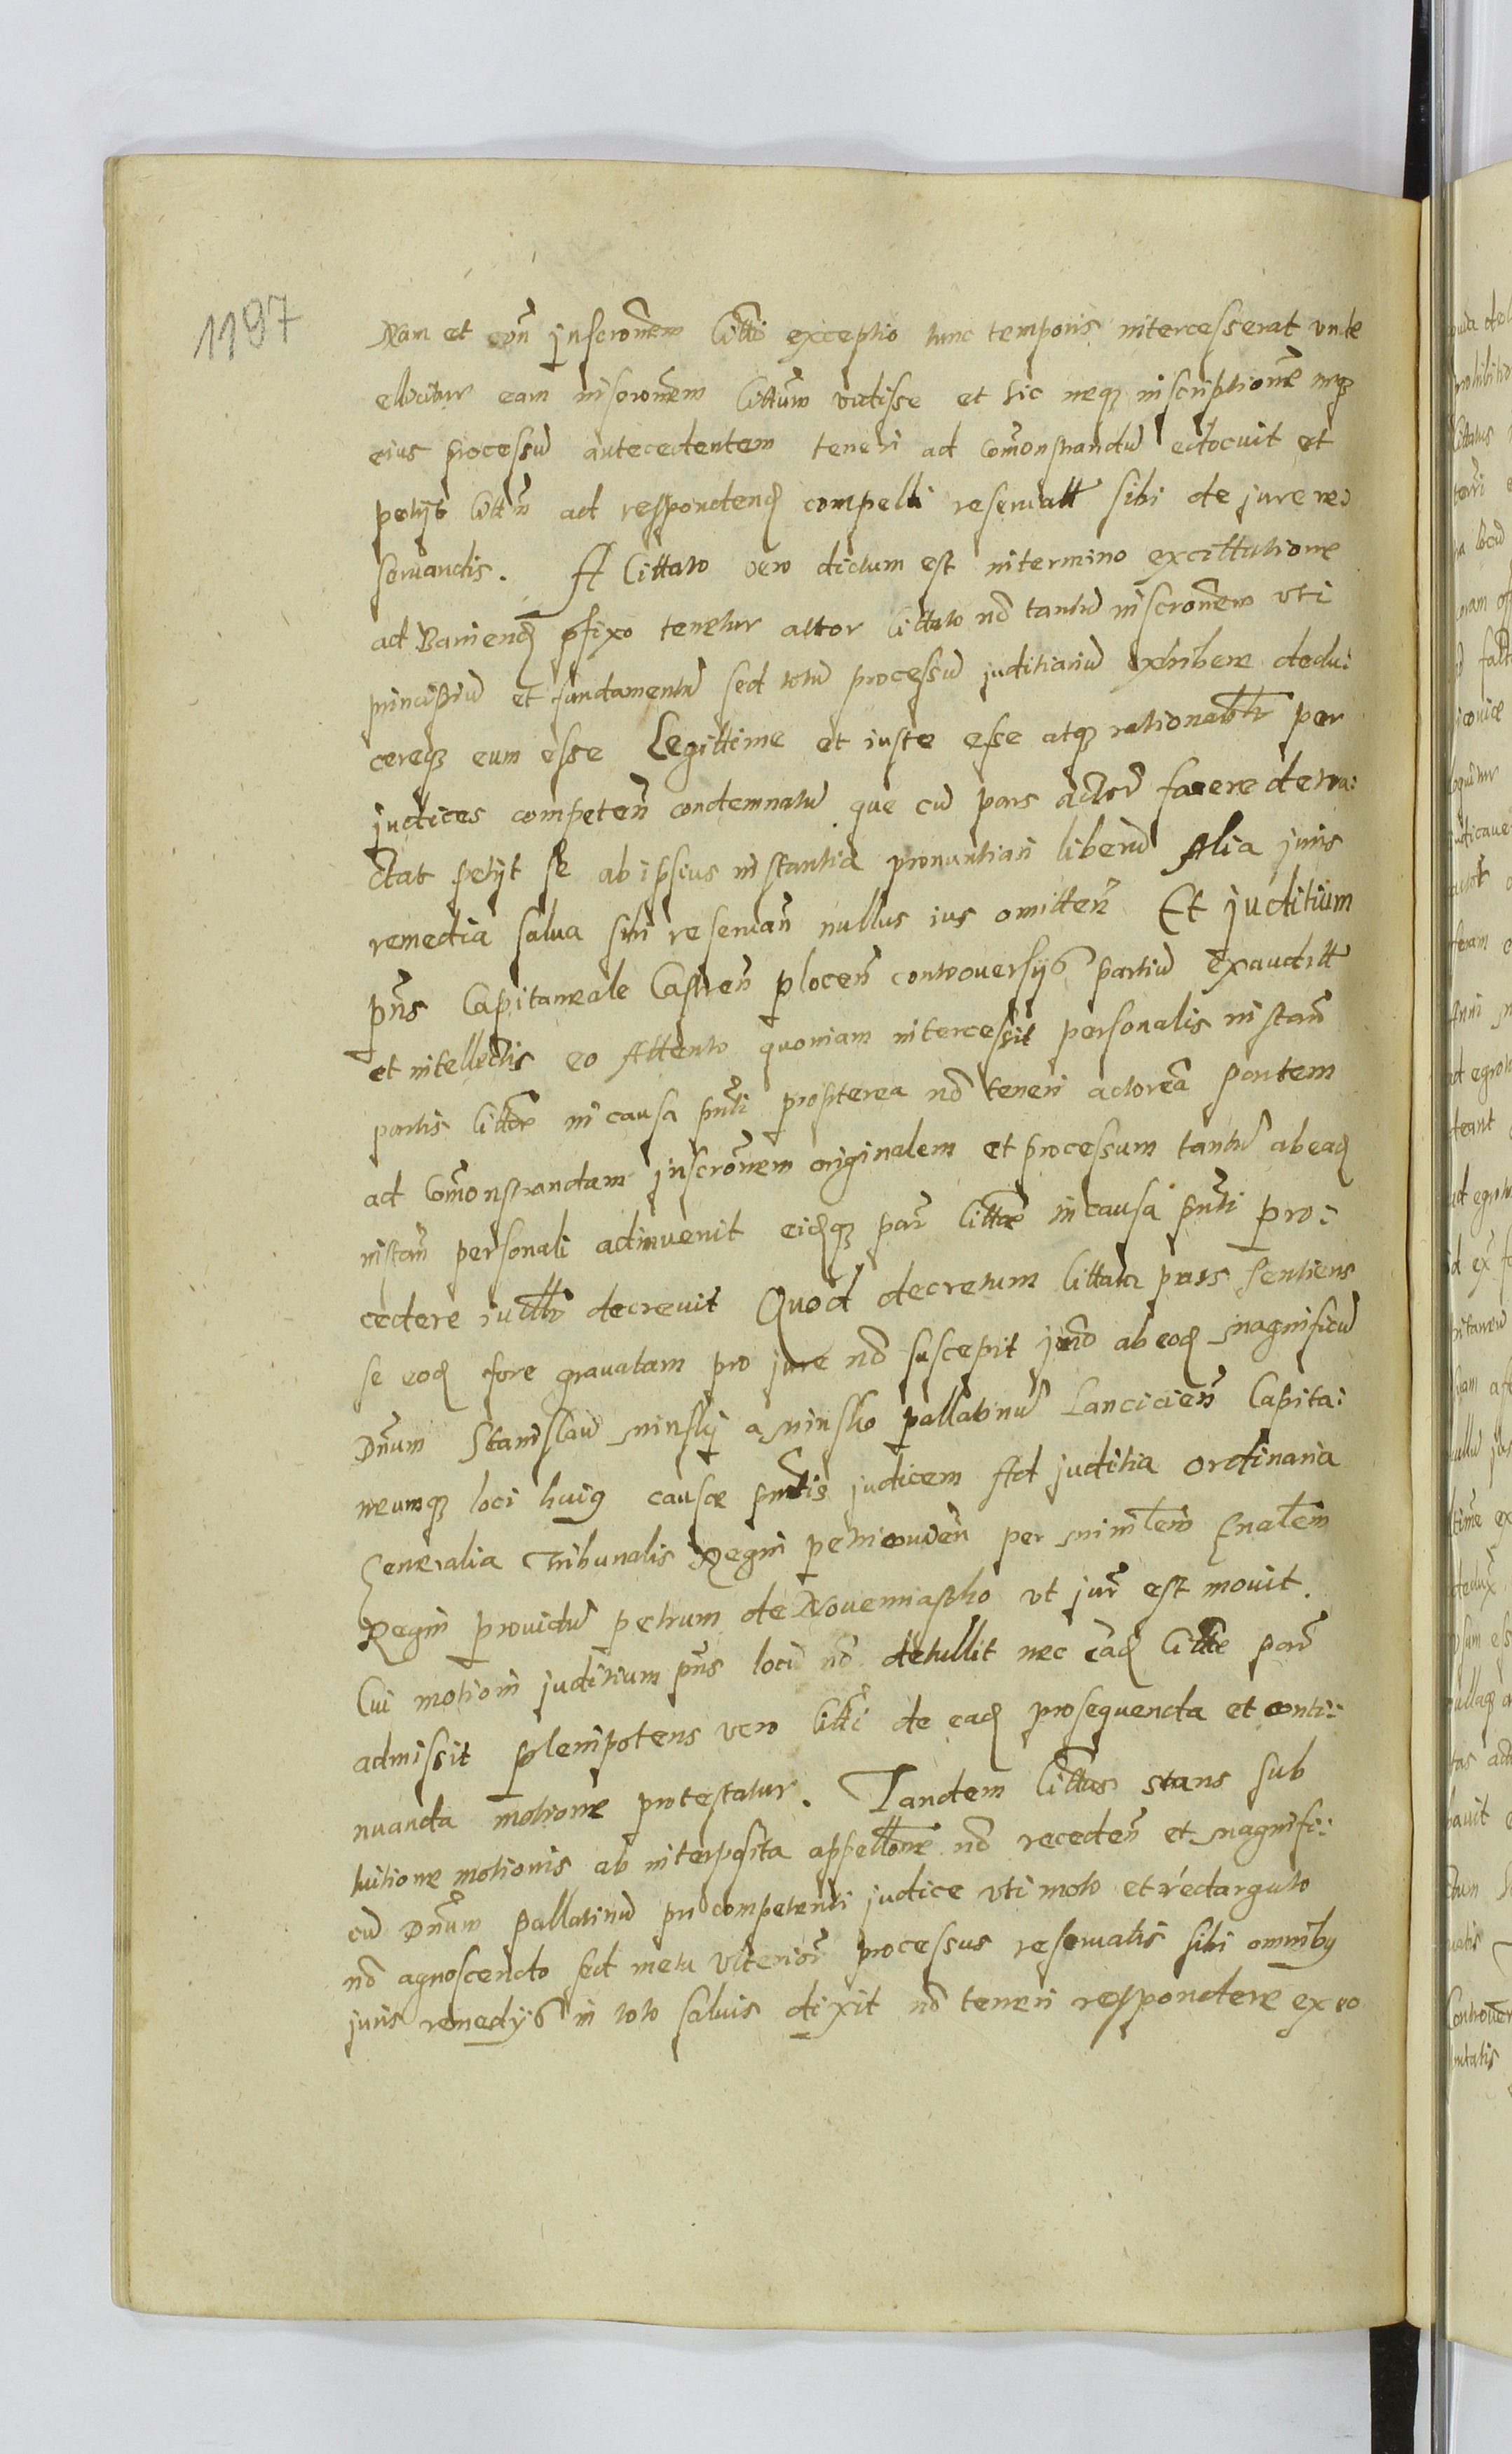 1197
Nam et eoñ jnscroñem Citti exceptio tunc temporis intercesserat vnde
ellicitur eam inscroñem Cittum vidisse et sic neq inscriptione neq
eius processu antecedentem teneri ad comonstrandu edocuit et
petijt ad respondend compelli reseruatt sibi de jure re:
seruandis. A Cittato vero dictum est in termino excittatione
ad Baniend pfixo tenetur actor Cittato no tantu inscroñem vti
principiu et fundamentu sed totu processu juditiariu exhibere dedu:
cereq eum esse Legittime et iuste esse atq rationabtr per
judices competeñ condemnatu que cu pars actor facere detra:
ctat petijt se ab ipsius instantia pronuntiari liberu Alia juris
remedia salua sibi reseruañ nullus ius omitteñ Et juditium
pñs Capitaneale Castreñ ploceñ controuersijs partiu exauditt
et intellectis eo Attento quoniam intercessit personalis instañ
partis Citte in causa pnti propterea no teneri actorea partem
ad comonstrandam jnscroñem originalem et processum tantu ab ead
instañ personali adinuenit eidq par Citte in causa pnti pro:
cedere decreuit Quod decretum Cittata pars sentiens
se eod fore grauatam pro jure no suscepit jmo ab eod Magnificu
Dñum Stanislau Minskj a Minsko pallatinu Lancicieñ Capita:
neumq loci huig causæ pntis judicem Ad juditia ordinaria
Generalia Tribunalis Regni petricouieñ per ministem Gnalem
Regni prouidu petrum de Nouemiastko vt jur est mouit.
Cui motioni juditium pñs loci no detullit nec ead Citte par
admissit plenipotens vero Citti de ead prosequenda et conti:
nuanda motione protestatur. Tandem Cittas stans sub
tuitione motionis ab interposita appellone no recedeñ et Magnifi:
cu Dñum pallatinu pri competenti judice vti moto et redarguto
no agnoscendo sed metu vlterior processus reseruatis sibi omnibg
juris remedijs in toto saluis dixit no teneri respondere ex eo